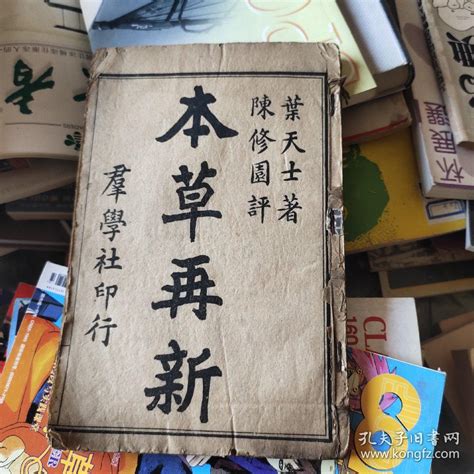 葉天士著
陳修園評
本草再新
羣學社印行
杯展選
CL
160
孔夫子旧书网
www.kongfz.com